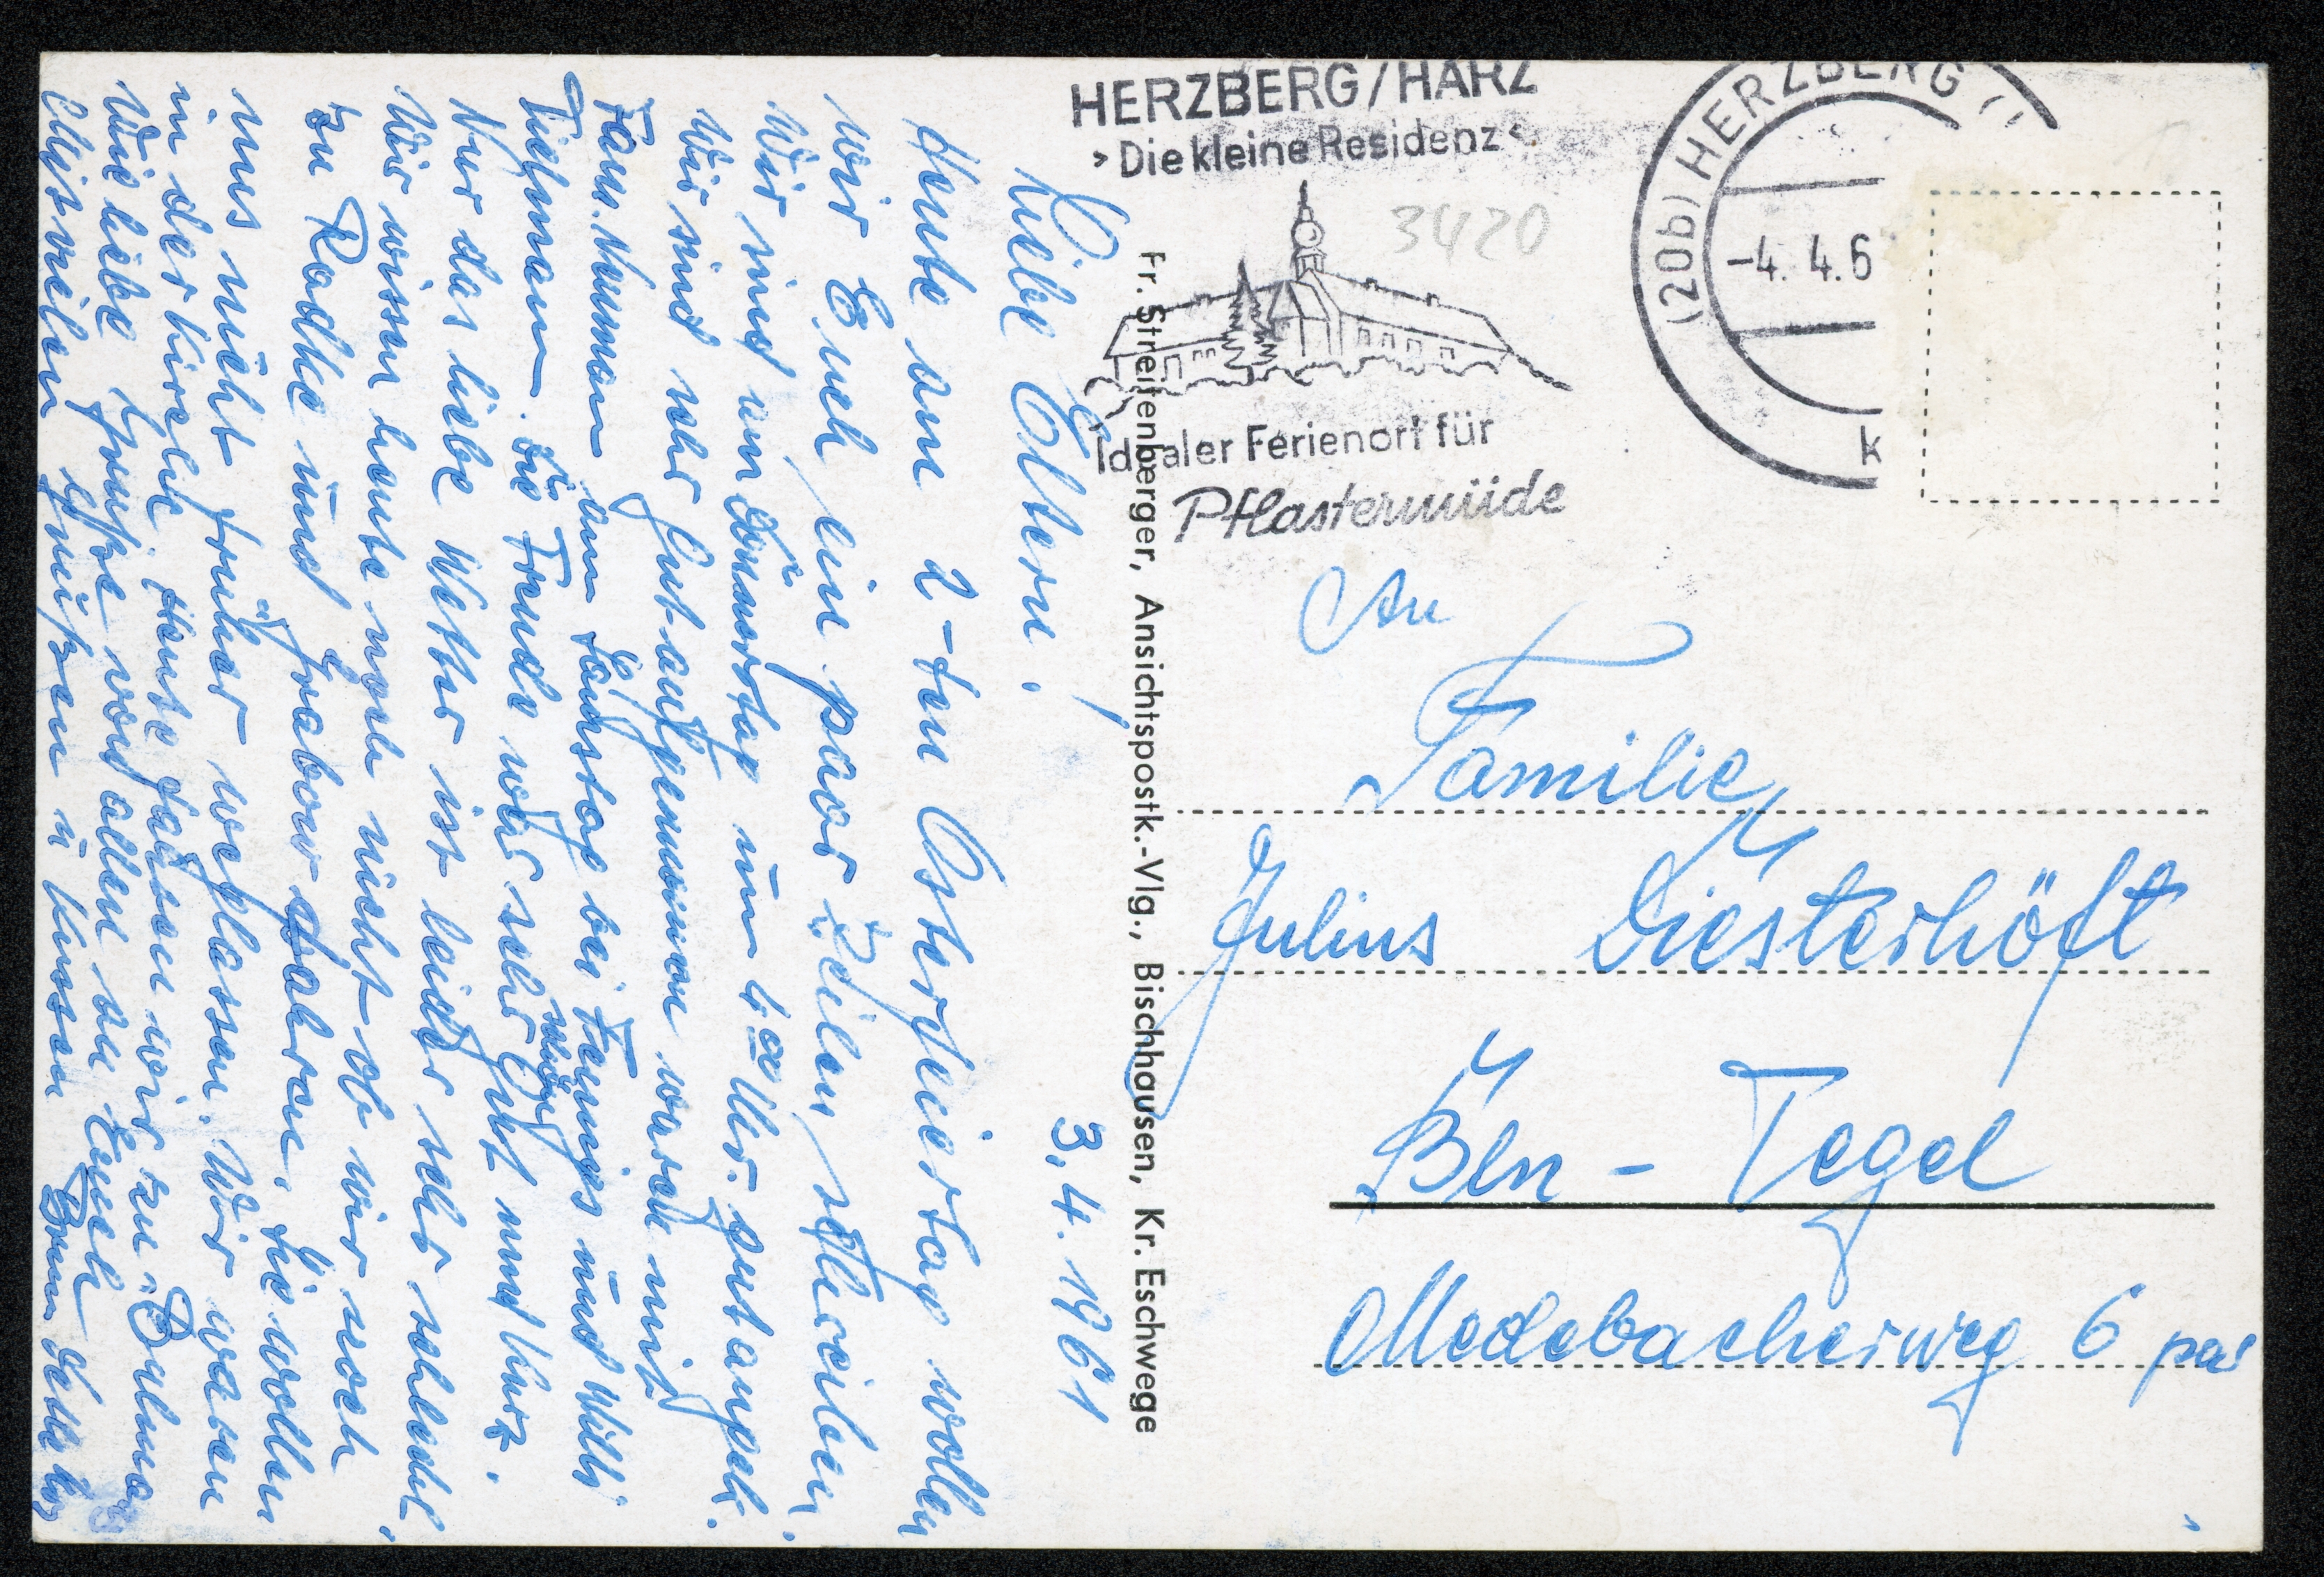 HERZBERG/HARZ
›Die kleine Residenz‹
Idealer Ferienort für
Pflastermüde
(20b) HERZBERG
-4. 4.6
k
3420
Fr. Streifenberger, Ansichtspostk.-Vlg., Bischhausen, Kr. Eschwege
3.4.1961
Liebe Eltern.
Heute am 2-ten Osterfeiertag wollen
wir Euch ein paar Zeilen schreiben.
Wir sind am Donnerstag um 4.00 Uhr gut angek.
Wir sind sehr gut aufgenommen worden mit
Fam. Neumann am Sonnstag bei Hennigs und Willi
Tiehmann. Die Freude war sehr gut und kurz.
Nur das liebe Wetter ist leider sehr schlecht.
Wir wissen heute noch nicht ob wir noch
zu Radtke und Grabow fahren. Sie wollen
uns nicht früher weglassen. Wir waren
in der Kirche. Heute fahren wir zu
Viele liebe Grüsse von allen an Euch
Mit vielen Grüßen u Küssen
An
Familie
Julius Diesterhöft
Bln - Tegel
Medebacherweg 6